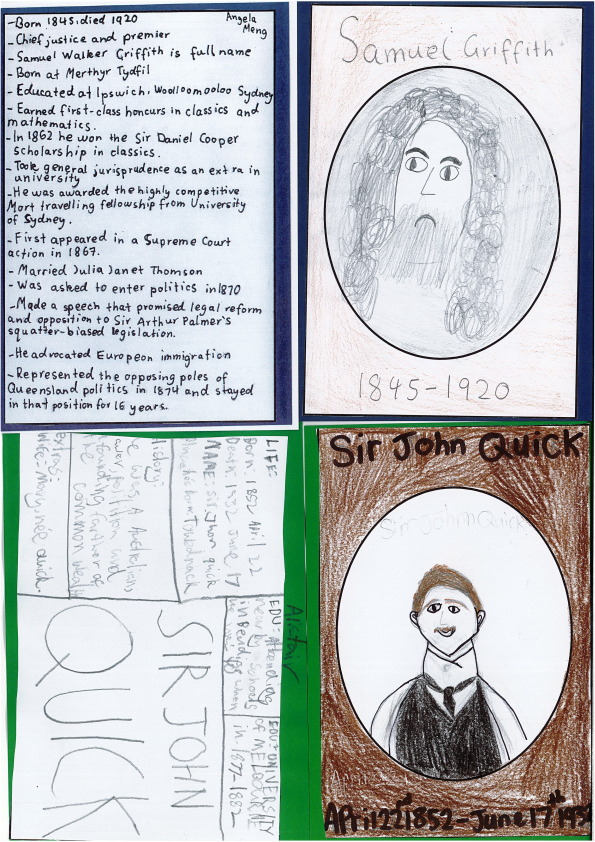 -Born 1845, died 1920
Angela
Meng
-Chief justice and premier
-Samuel Walker Griffith is full name
-Born at Merthyr Tydfil
-Educated at Ipswich, Woolloomooloo Sydney
-Earned first-class honcurs in classics and
mathematics.
-In 1862 he won the Sir Daniel Cooper
scholarship in classics.
-Took general jurisprudence as an extra in
university
-He was awarded the highly competitive
Mort travelling fellowship from University
of Sydney.
-First appeared in a Supreme Court
action in 1867.
-Married Julia Janet Thomson
-Was asked to enter politics in 1870
-Made a speech that promised legal reform
and opposition to Sir Arthur Palmer's
squatter-biased legislation.
-He advocated European immigration
-Represented the opposing poles of
Queensland politics in 1874 and stayed
in that position for 16 years.
Samuel Griffith
1845-1920
LIFE:
Born: 1852 April 22
Death: 1932 June 17
NAME: Sir Jhon quick
History:
He was A Australian
the common
extras:
wife- Mary née quick.
Alistair
EDU: Attending
nearby schools
in Bendigo when
EDU: UNIVERSITY
of MELBOURNE
in 1877-1882
SIR JOHN
QUICK
Sir John Quick
Sir John Quick
April 22nd 1852-June 17th 193